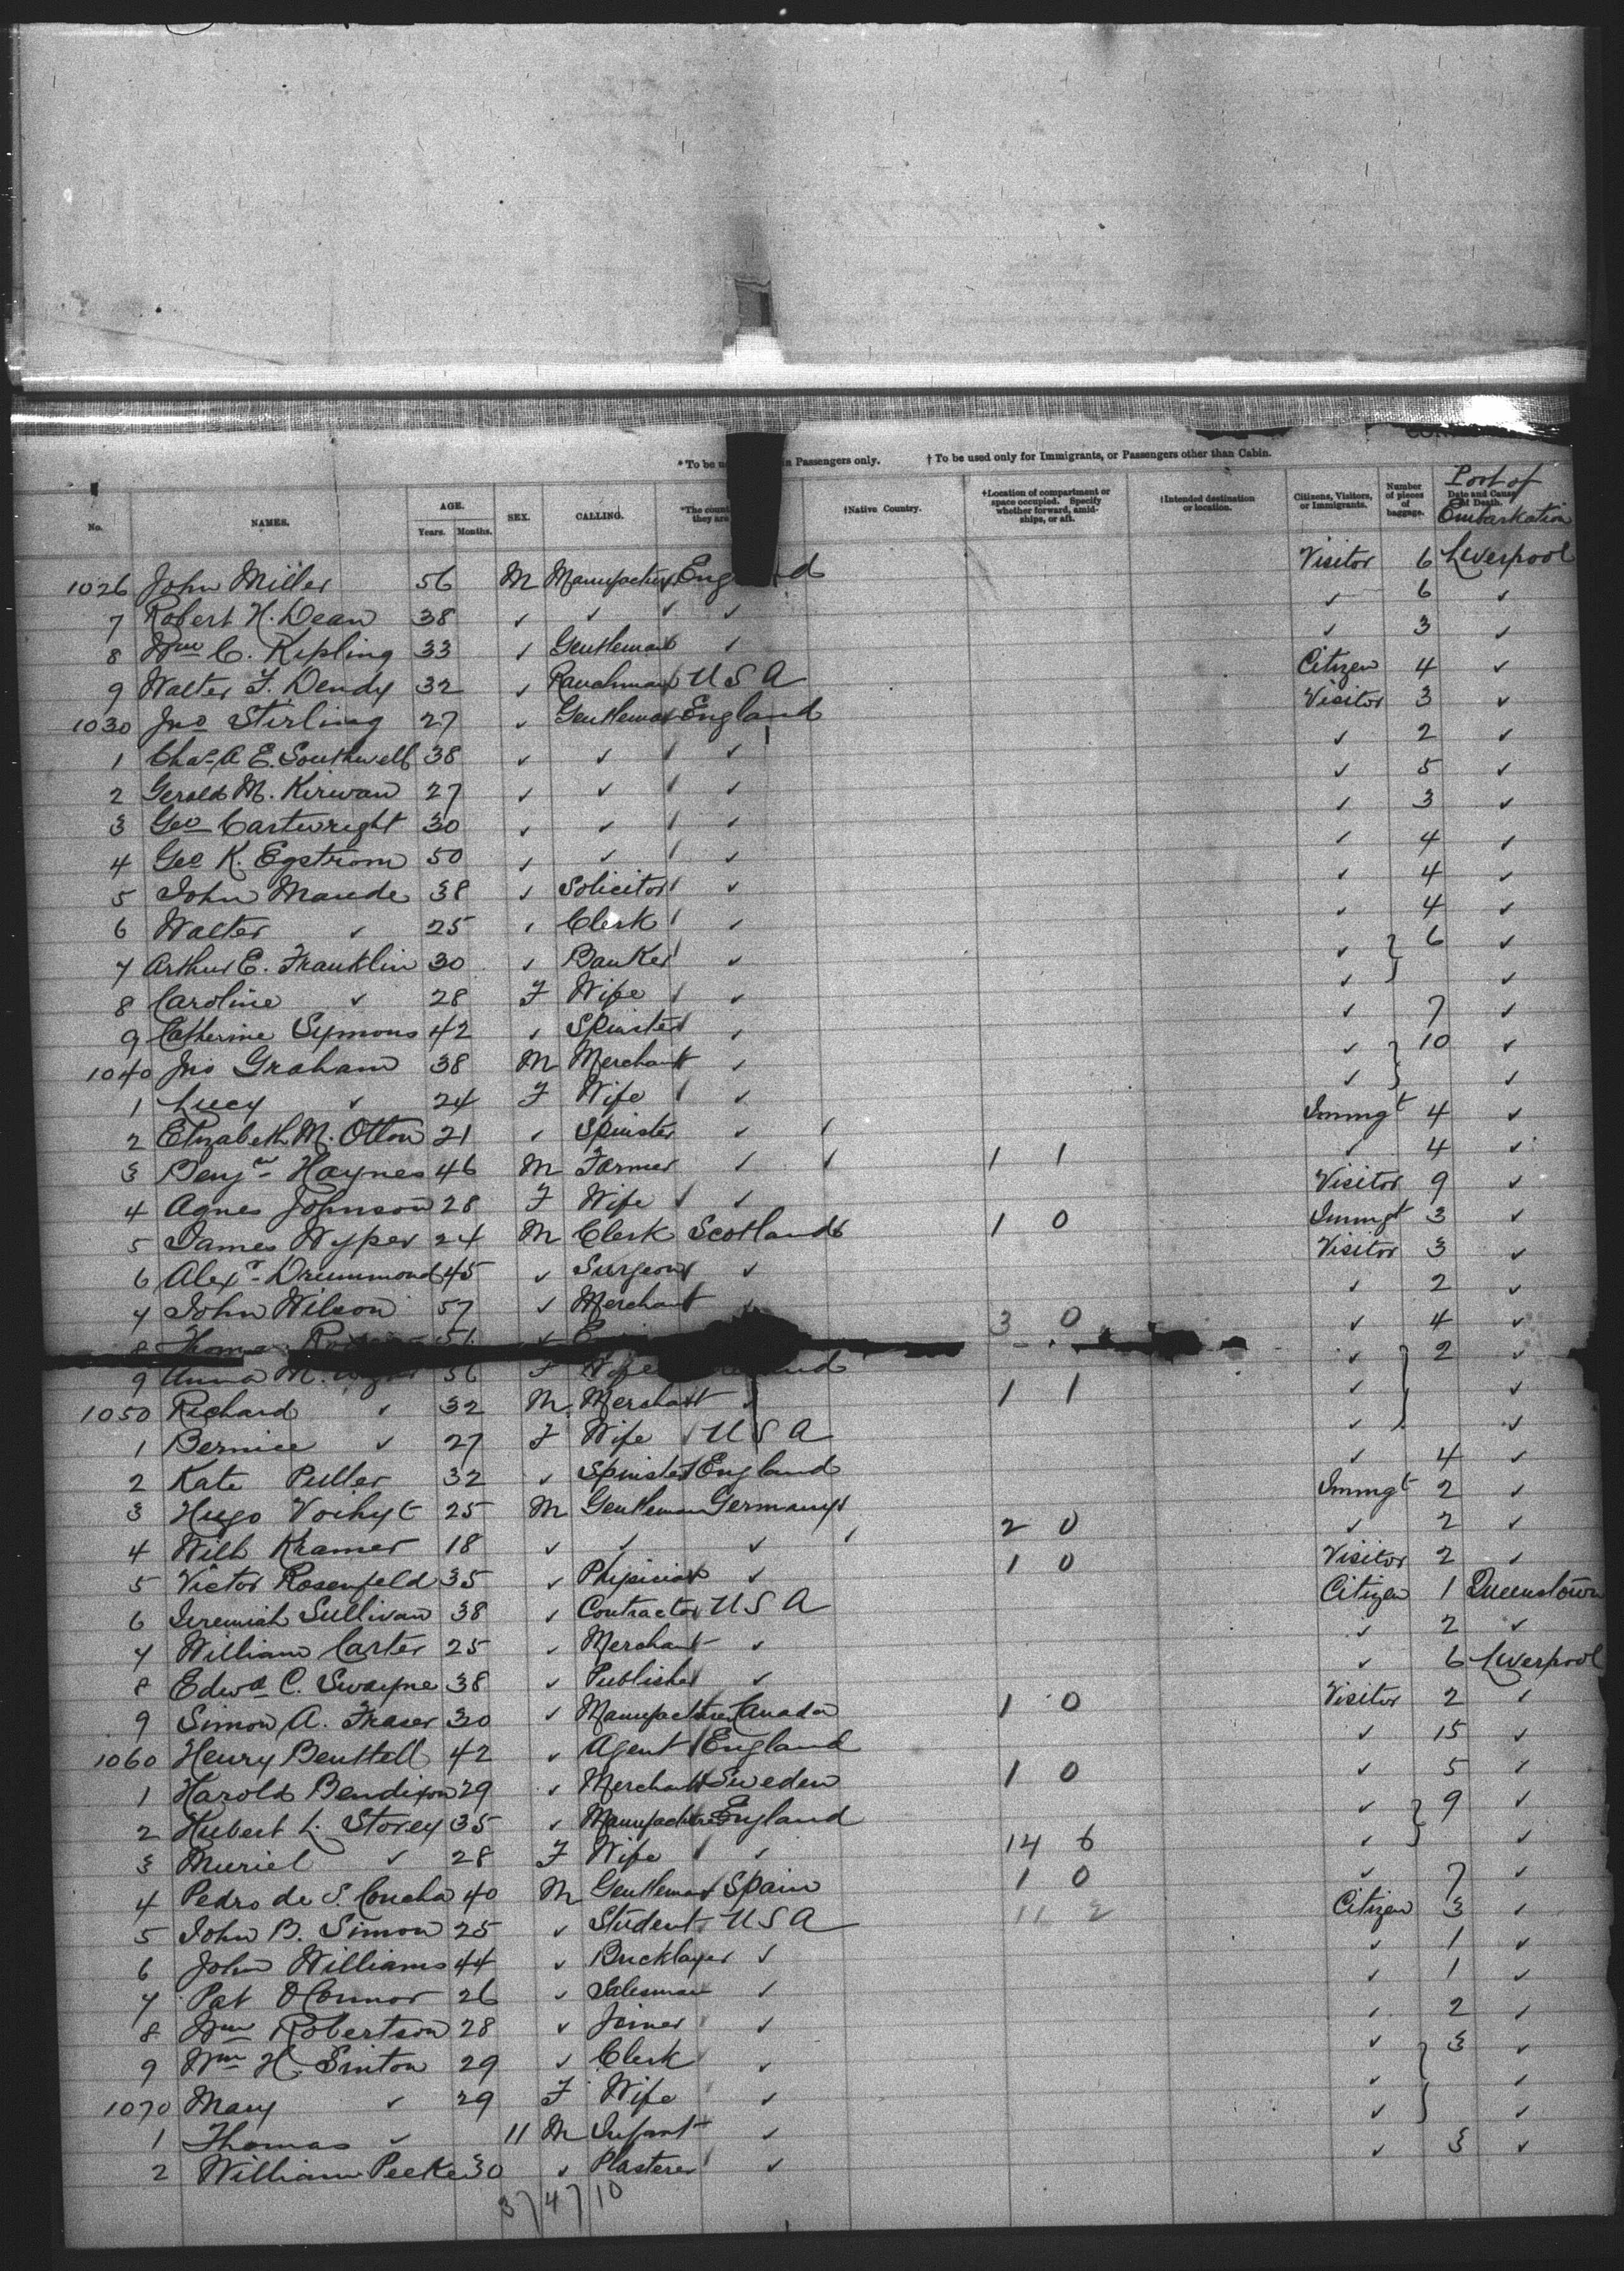 *To be u n Passengers only. † To be used only for Immigrants, or Passengers other than Cabin.
No. NAMES. AGE. Years. Months. SEX. CALLING. *The count they are †Native Country. †Location of compartment or space occupied. Specify whether forward, amidships, or aft. †Intended destination or location. Citizens, Visitors, or Immigrants. Number of pieces of baggage. Date and Cause of Death. Port of Embarkation
1026 John Miller 56 M Manufacturer Eng d Visitor 6 Liverpool
7 Robert H. Dean 38 ✓ ✓ ✓ ✓ 6 ✓
8 Wm C. Kipling 33 ✓ Gentleman ✓ ✓ 3 ✓
9 Walter F. Dendy 32 ✓ Ranchman U S A Citizen 4 ✓
1030 Jno Stirling 27 ✓ Gentleman England Visitor 3 ✓
1 Chas A E. Southwell 38 ✓ ✓ ✓ ✓ 2 ✓
2 Gerald M. Kirwan 27 ✓ ✓ ✓ ✓ 5 ✓
3 Geo Cartwright 30 ✓ ✓ ✓ ✓ 3 ✓
4 Geo K. Egstrom 50 ✓ ✓ ✓ ✓ 4 ✓
5 John Maude 38 ✓ Solicitor ✓ ✓ 4 ✓
6 Walter ✓ 25 ✓ Clerk ✓ ✓ 4 ✓
7 Arthur E. Franklin 30 ✓ Banker ✓ ✓ 6 ✓
8 Caroline ✓ 28 F Wife ✓ ✓ ✓
9 Catherine Symons 42 ✓ Spinster ✓ ✓ 7 ✓
1040 Jno Graham 38 M Merchant ✓ ✓ 10 ✓
1 Lucy ✓ 24 F Wife ✓ ✓ ✓
2 Elizabeth M. Otton 21 ✓ Spinster ✓ Immgt 4 ✓
3 Benjn Haynes 46 M Farmer ✓ 1 1 ✓ 4 ✓
4 Agnes Johnson 28 F Wife ✓ Visitor 9 ✓
5 James Wyper 24 M Clerk Scotland 1 0 Immgt 3 ✓
6 Alexr Drummond 45 ✓ Surgeon ✓ Visitor 3 ✓
7 John Wilson 57 ✓ Merchant ✓ ✓ 2 ✓
8 Thomas 51 ✓ 3 0 ✓ 4 ✓
9 Anna M. 56 F Wife nd ✓ 2 ✓
1050 Richard ✓ 32 M Merchant ✓ 1 1 ✓ ✓
1 Bernice ✓ 27 F Wife U S A ✓ ✓
2 Kate Puller 32 ✓ Spinster England ✓ 4 ✓
3 Hugo 25 M Gentleman Germany Immgt 2 ✓
4 Wilh Kramer 18 ✓ ✓ ✓ 2 0 ✓ 2 ✓
5 Victor Rosenfeld 35 ✓ Physician ✓ 1 0 Visitor 2 ✓
6 Jeremiah Sullivan 38 ✓ Contractor U S A Citizen 1 Queenstown
7 William Carter 25 ✓ Merchant ✓ ✓ 2 ✓
8 Edwd C. Swayne 38 ✓ Publisher ✓ ✓ 6 Liverpool
9 Simon A. Fraser 30 ✓ Manufacturer Canada 1 0 Visitor 2 ✓
1060 Henry Benttell 42 ✓ Agent England ✓ 15 ✓
1 Harold Bendixon 29 ✓ Merchant Sweden 1 0 ✓ 5 ✓
2 Hubert L. Storey 35 ✓ Manufacturer England ✓ 9 ✓
3 Muriel ✓ 28 F Wife ✓ 14 6 ✓ ✓
4 Pedro de S. Concha 40 M Gentleman Spain 1 0 ✓ 7 ✓
5 John B. Simon 25 ✓ Student U S A 11 2 Citizen 3 ✓
6 John Williams 44 ✓ Bricklayer ✓ ✓ 1 ✓
7 Pat O'Connor 26 ✓ Salesman ✓ ✓ 1 ✓
8 Wm Robertson 28 ✓ Joiner ✓ ✓ 2 ✓
9 Wm H. Sinton 29 ✓ Clerk ✓ ✓ 3 ✓
1070 Mary ✓ 29 F Wife ✓ ✓ ✓
1 Thomas ✓ 11 M Infant ✓ ✓ ✓
2 William Peeke 30 ✓ Plasterer ✓ ✓ 3 ✓
37 47 10